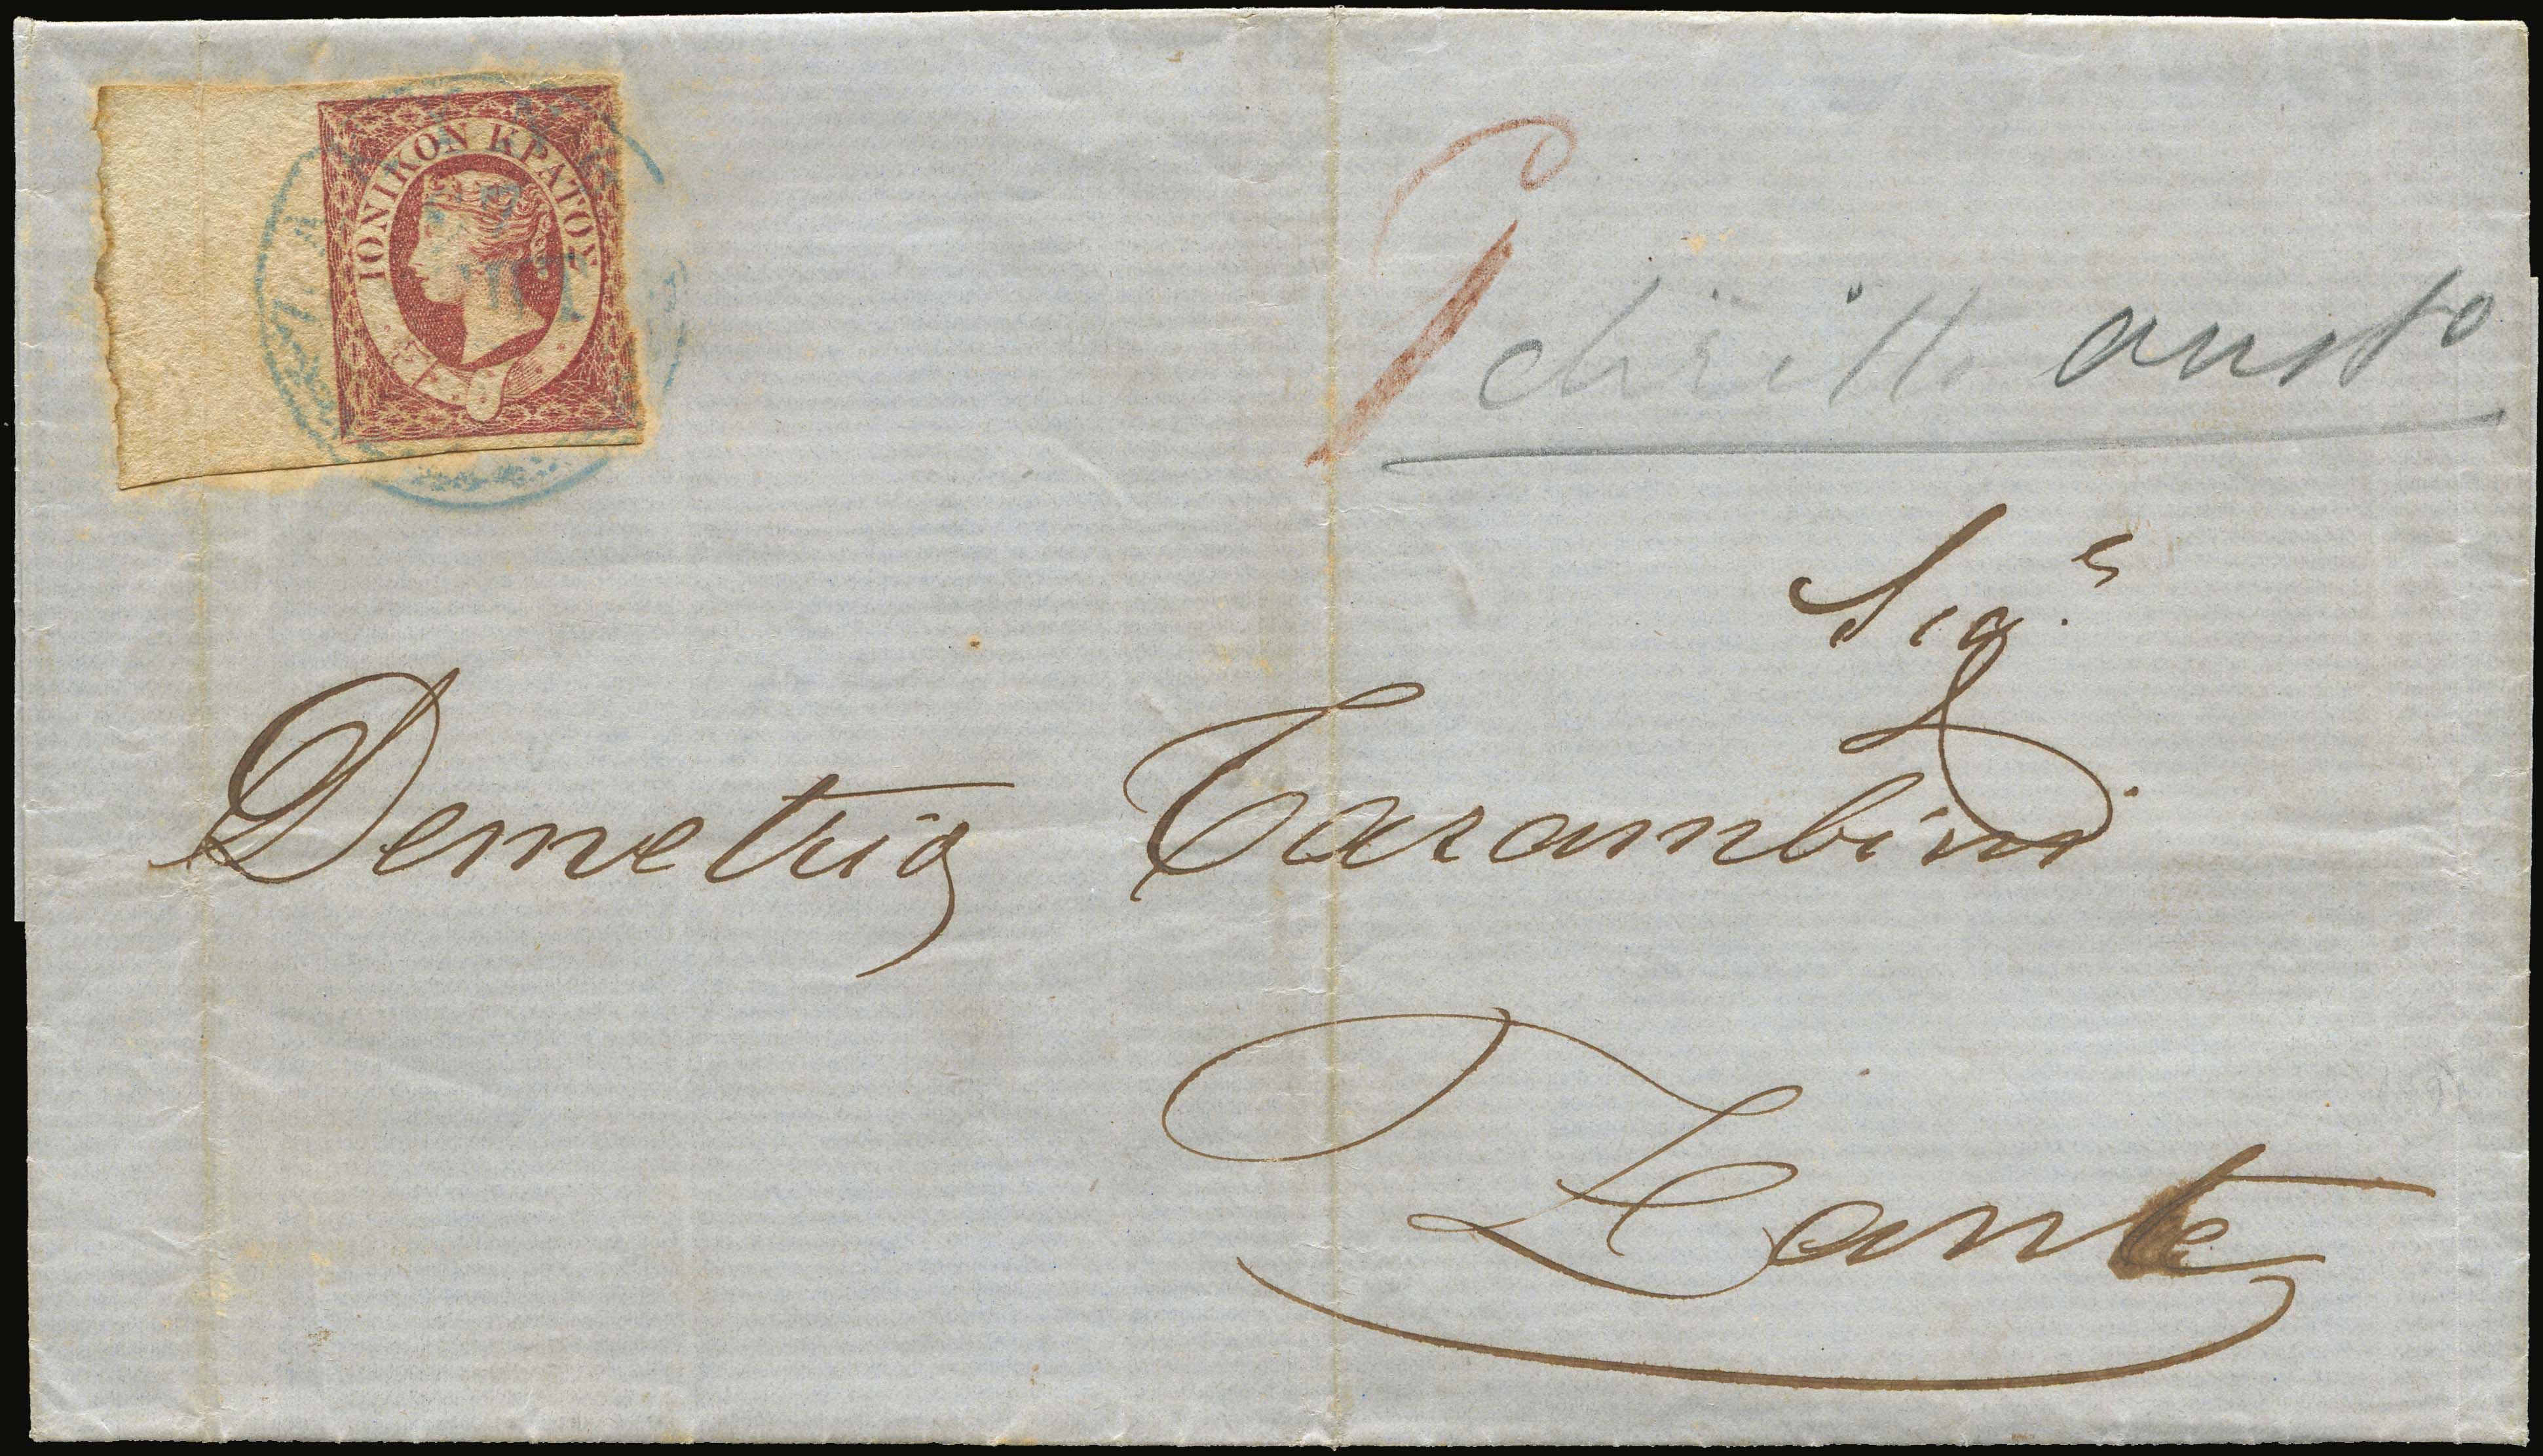 ΙΟΝΙΚΟΝ ΚΡΑΤΟΣ
Sig.r
Demetrio Carambini
Zante